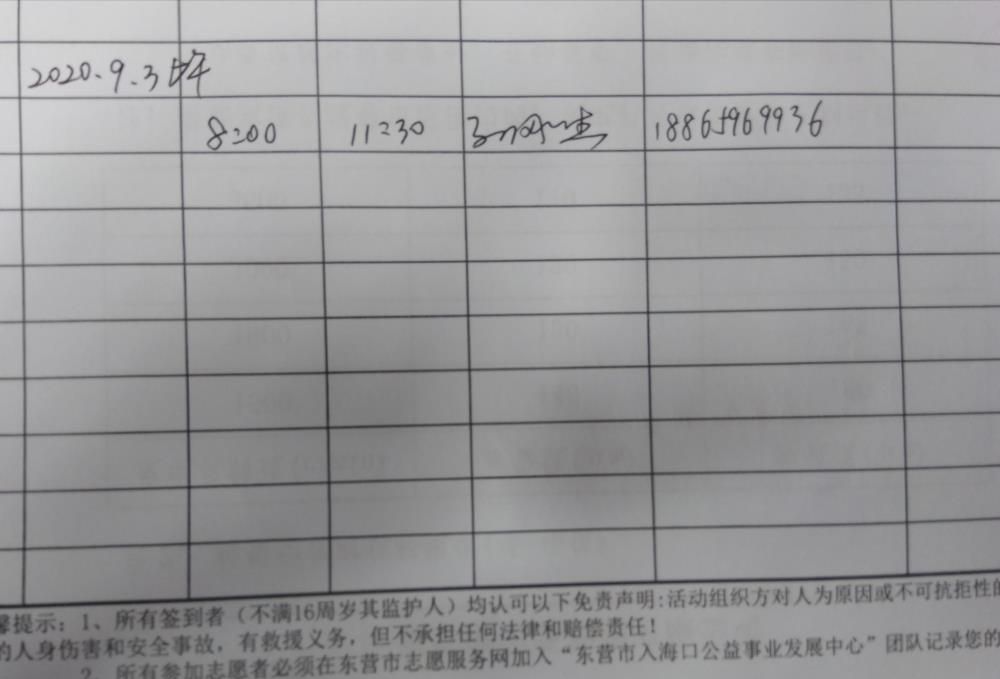 2020.9.3上午
8:00 11:30 18865969936
馨提示：1、所有签到者（不满16周岁其监护人）均认可以下免责声明：活动组织方对人为原因或不可抗拒性的
的人身伤害和安全事故，有救援义务，但不承担任何法律和赔偿责任！
2、所有参加志愿者必须在东营市志愿服务网加入“东营市入海口公益事业发展中心”团队记录您的